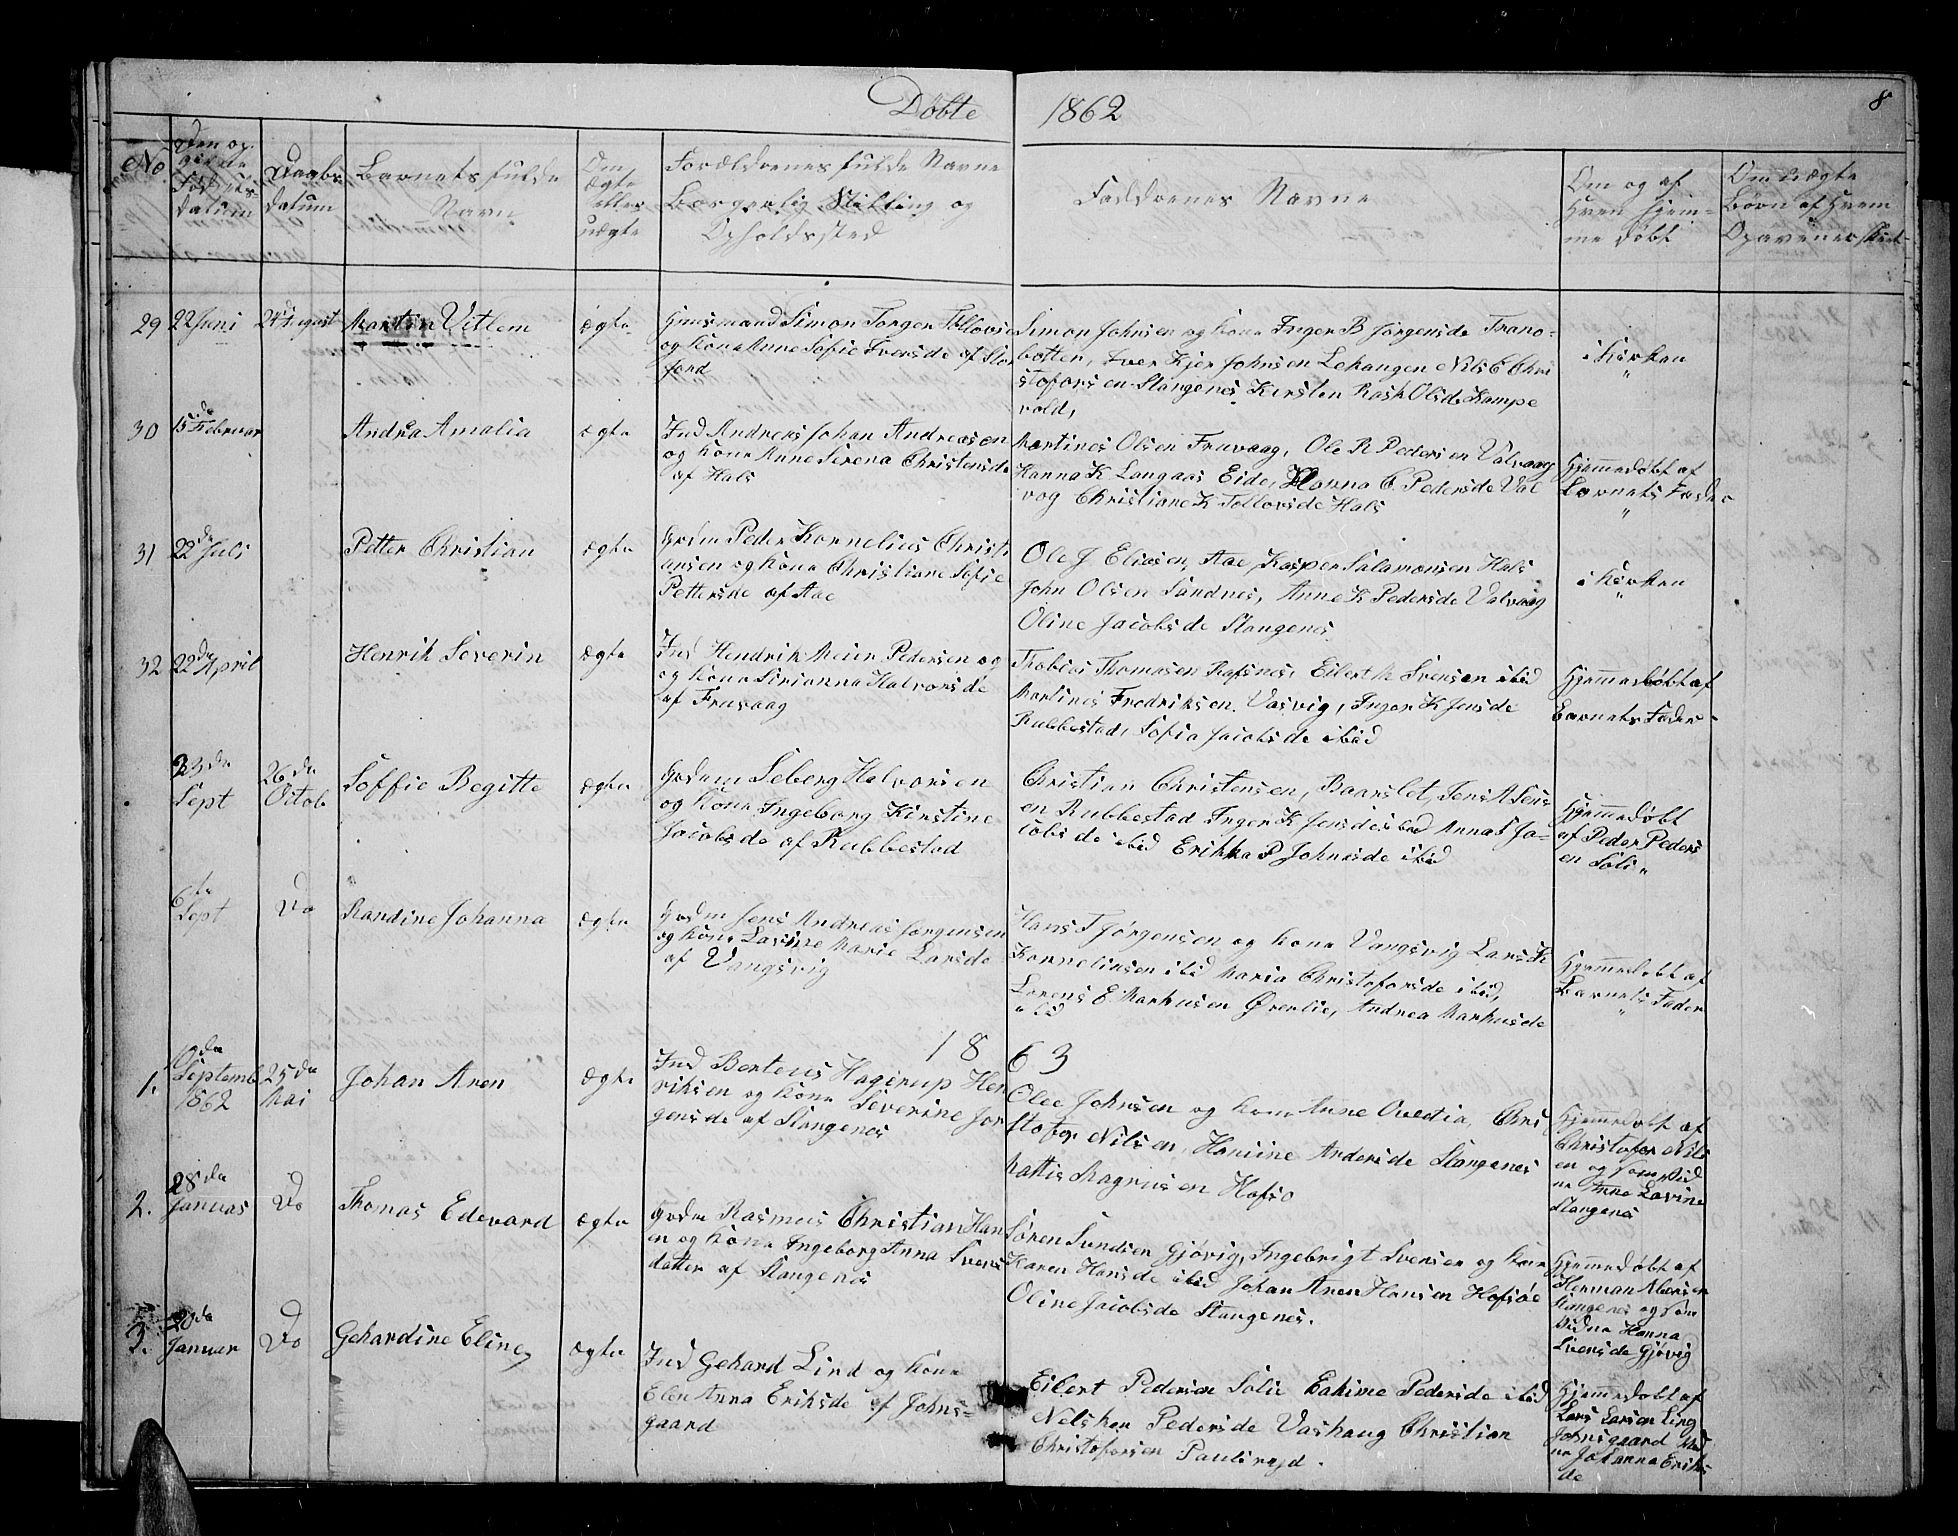 Döbte 1862
8
No
Den og
Födsels-
datum
Daabs
datum
Barnets fulde
Navn
Om
Ægte
eller
uægte
Forældrenes fulde Navne
Borgerlig Stilling og
Opholdssted
Faddrenes Navne
Om og af
Hvem hjem-
me döbt
Om Uægte
Börn af Hvem
29 22 Juni 24 August Martin Vitlem ægte Huusmand Simon Torger Tollovs
og Kone Anne Sofie Iversde af Stor
fjord
Simon Johnsen og Kone Inger B Jörgensde Trano-
botten, Iver Kjer Johnsen Lekangen Nils C Chri
stofersen Slangenes, Kirsten Rask Olsde Kampe
vold,
i Kirken
30 15 de Februar Andrea Amalia ægte Ind Andreas Johan Andreasen
og Kone Anne Serena Christensde
af Hals
Martines Olsen Fruvaag, Ole R Pedersen Valvaag
Hanna K Langaas Eide, Hanna C. Pedersde Val
vog Christiane K Tollovsde Hals
Hjemmedöbt af
Barnets Fader
31 22 de Juli Petter Christian ægte Grdm Peder Kornelius Christi
ansen og Kone Christiane Sofie
Pettersde af Aae
Ole J Eliasen Aae, Kasper Salamonsen Hals
John Olsen Sandnes, Anne K Pedersde Valvaag
Oline Jacobsde Slangenes
i Kirken
32 22 de April Henrik Severin ægte Ind Hendrik Meier Pedersen og
og Kone Sirianna Halvorsde
af Fruvaag
Thobias Thomasen Rafsnes, Eilert M Svensen ibid
Martines Fredriksen Vasvig, Inger K Jensde
Rubbestad, Sofia Jacobsde ibid
Hjemmedöbt af
Barnets Fader
23 de Sept 26 de Octob Soffie Begitte ægte Grdm Seberg Halvorsen
og Kone Ingeborg Kirstine
Jacobsde af Rubbestad
Christian Christensen, Baarslet, Jens A Jens
en Rubbestad Inger K Jensde ibid Anna S Ja-
cobsde ibid Erikka P Johnsde ibid
Hjemmedöbt
af Peder Peders
en Soli
6 te Sept Do Randine Johanna ægte Grdm Jens Andreas Jörgensen
og Kone Lavine Marie Larsde
af Vangsvig
Hans T Jörgensen og Kone Vangsvig Lars K
Korneliusen ibid Maria Christofersde ibid,
Lorens E Markusen Överlie, Andrea Markusde
ibid
Hjemmedöbt af
Barnets Fader
1863
1. de Septemb 1862 25 de Mai Johan Aren ægte Ind Berteus Hagerup Hen
riksen og Kone Severine Jör
gensde af Slangenes
Olee Johnsen og Kone Anne Ovedia, Chri
stofer Nilsen, Hansine Andersde Slangenes
Mattis Magnusen Hofsö
Hjemmedöbt af
Christofer Nils
en og som Vid
ne Anne Lavine
Slangenes
2. 28 de Januar Do Thomas Edevard ægte Grdm Rasmus Christian Han
en og Kone Ingeborg Anna Svens
datter af Slangenes
Sören Sundsen Gjövig, Ingebrigt Svensen og Kone
Karen Hansde ibid Johan Aren Hansen Hofsöe
Oline Jacobsde Slangenes.
Hjemmedöbt af
Herman Albersen
Slangenes og som
Vidne Hanna
Svensde Gjövig
3. 20 de Januar Do Gehardine Eline ægte Ind Gehard Lind og Kone
Elen Anna Eriksde af Johns-
gaard
Eilert Pedersen Solie Eakime Pedersde ibid
Nelsken Pedersde Vashaug Christian
Christofersen Paulsrejd.
Hjemmedöbt af
Lars Larsen Ling
Johnsgaard Vid
ne Johanna Eriks
de